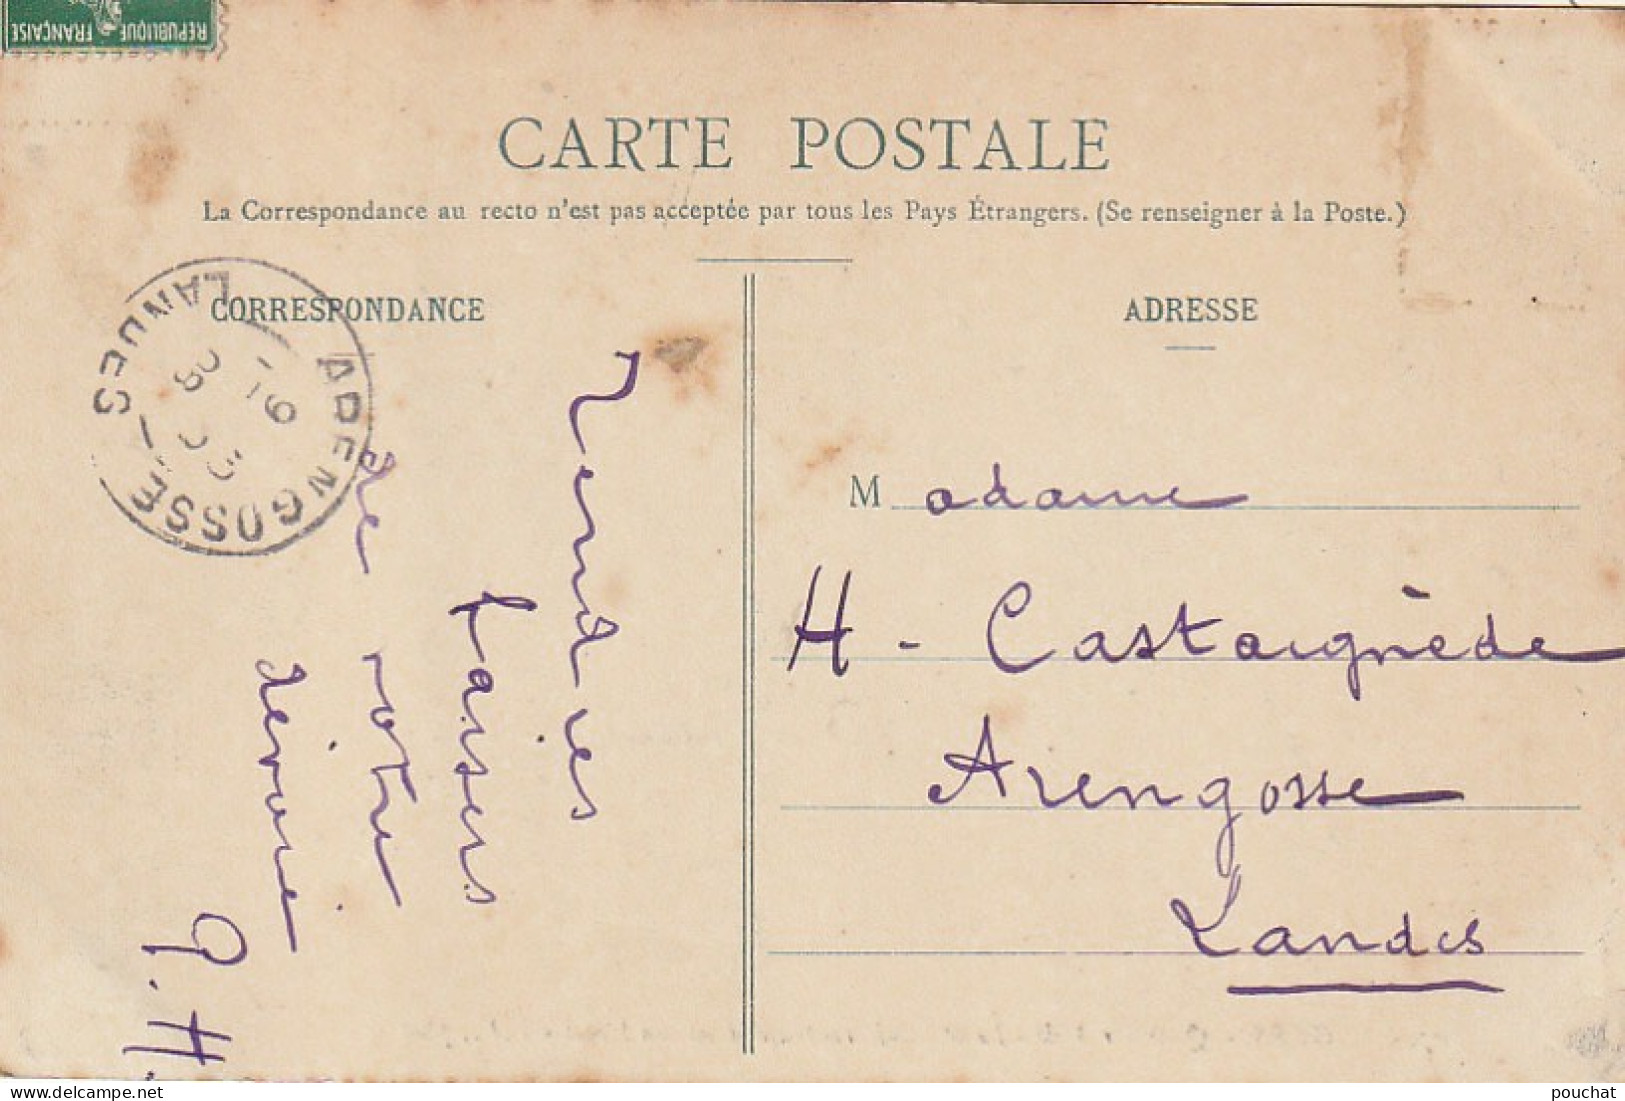 REPUBLIQUE FRANÇAISE
CARTE POSTALE
La Correspondance au recto n'est pas acceptée par tous les Pays Étrangers. (Se renseigner à la Poste.)
CORRESPONDANCE
ADRESSE
ARENGOSSE - LANDES
Tendres
baisers
de votre
dévoué
M adame
H - Castaignède
Arengosse
Landes
FRANCE
delcampe.net
pouchat